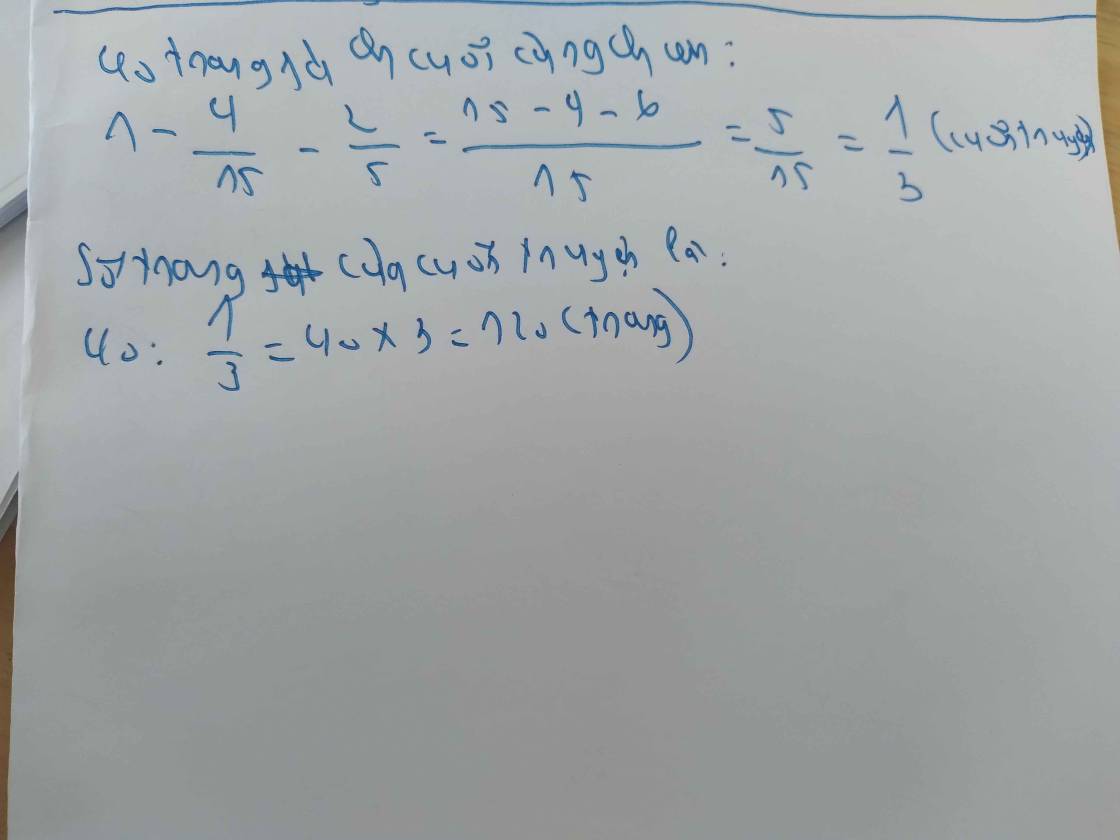 40 trang sách cuối cùng chiếm:
1 - 4/15 - 2/5 = (15 - 4 - 6)/15 = 5/15 = 1/3 (cuốn truyện)
Số trang của cuốn truyện là:
40 : 1/3 = 40 × 3 = 120 (trang)